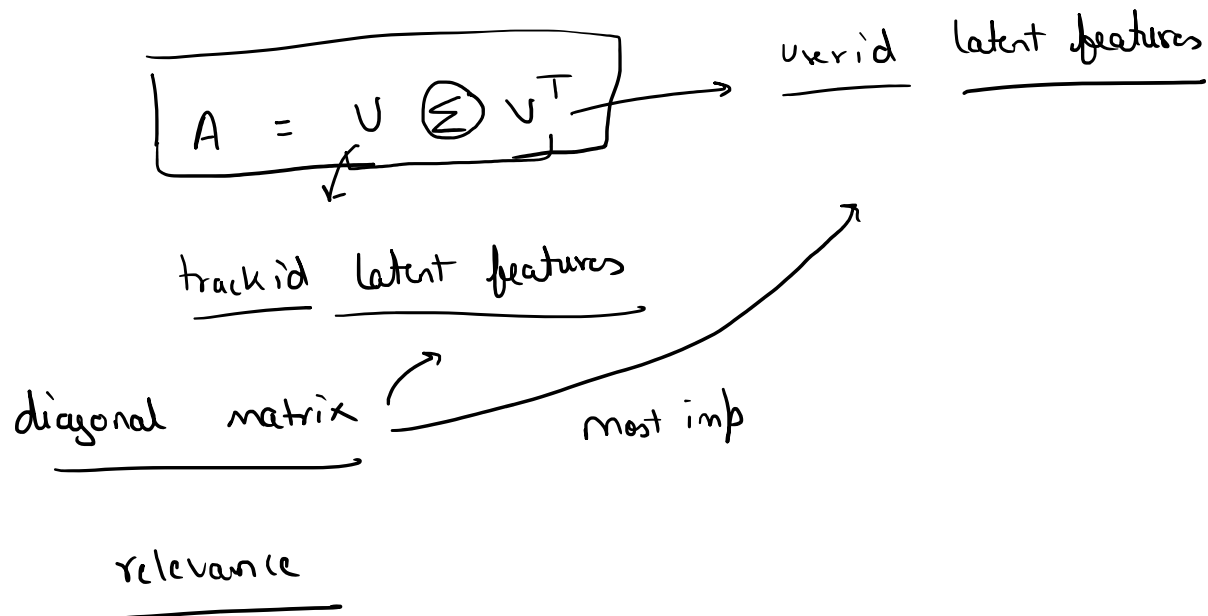 userid latent features
A = U Σ V^T
trackid latent features
diagonal matrix
most imp
relevance